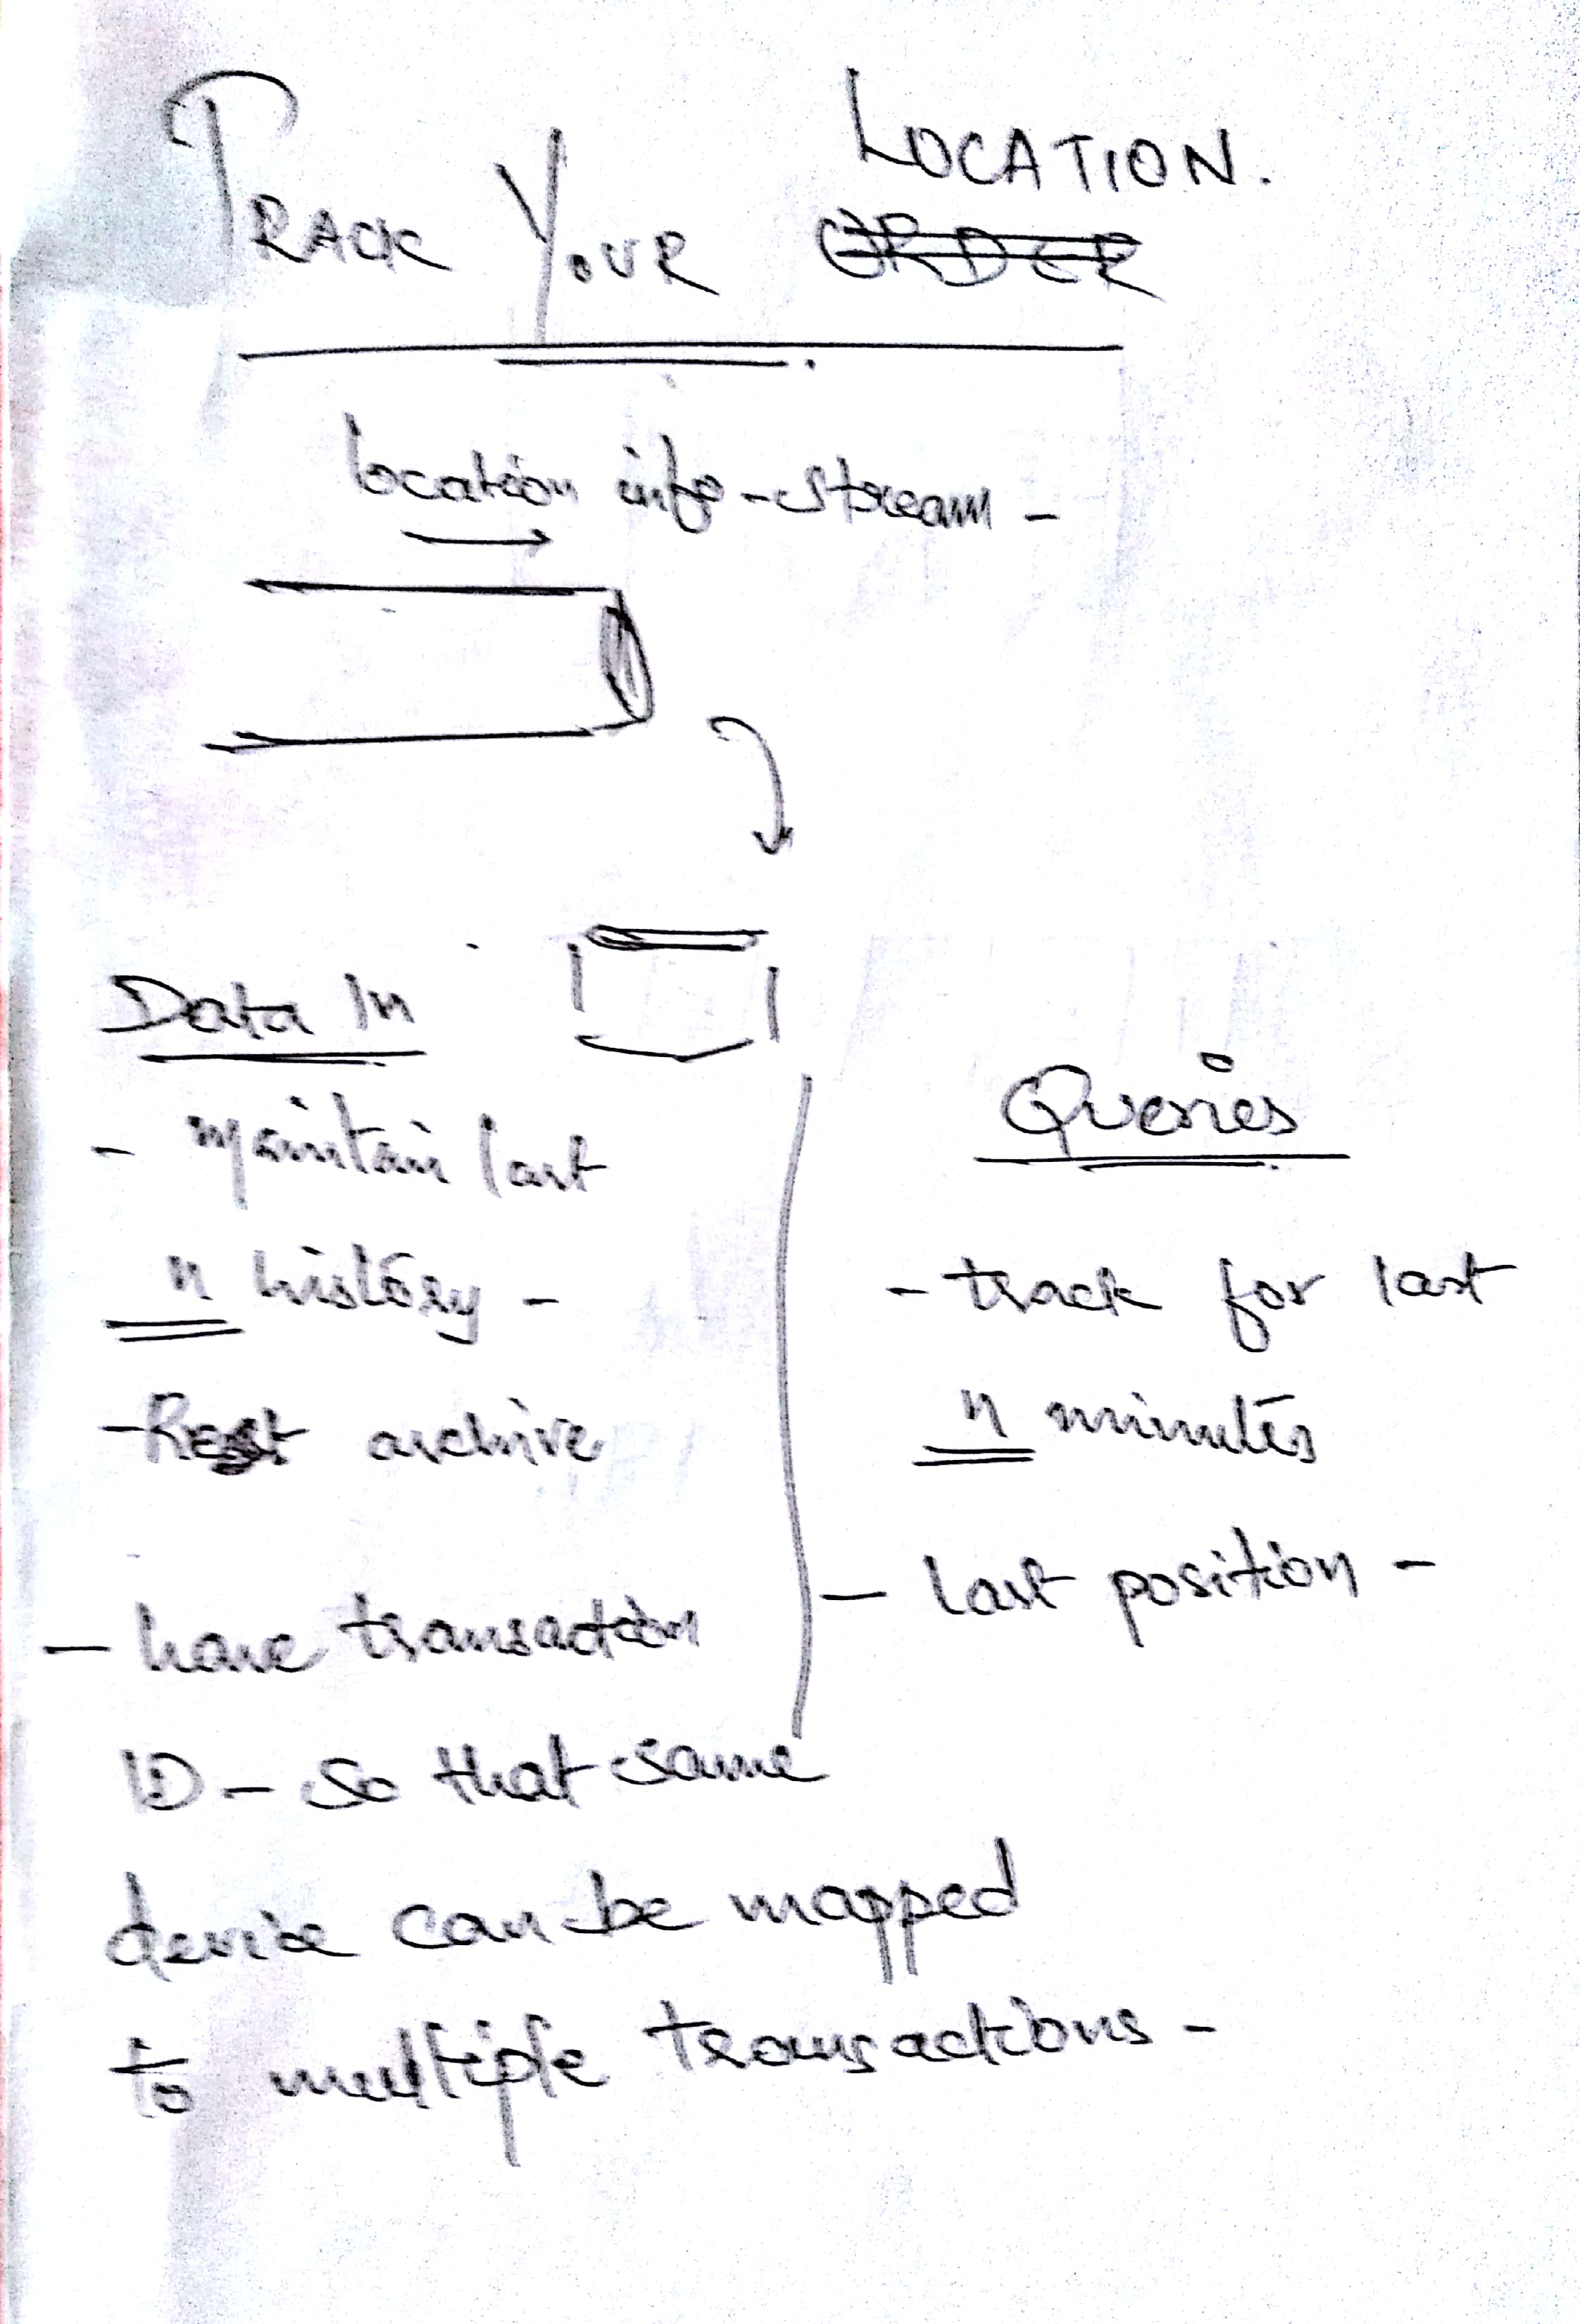 LOCATION.
TRACK YOUR ORDER
location info-stream -
Data In
- maintain last
n history -
- Rest archive
- have transaction
ID - so that same
device can be mapped
to multiple transactions -
Queries
- track for last
n minutes
- last position -